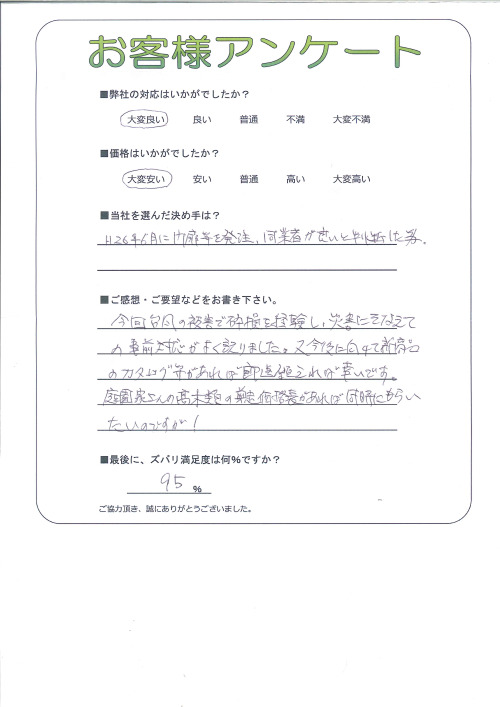 お客様アンケート
■弊社の対応はいかがでしたか?
大変良い 良い 普通 不満 大変不満
■価格はいかがでしたか?
大変安い 安い 普通 高い 大変高い
■当社を選んだ決め手は?
H26年6月に門扉等を発注、同業者が良いと判断した為。
■ご感想・ご要望などをお書き下さい。
今回台風の被害で破損を経験し、災害にそなえて
の事前対応がよく説りました。又今後に向けて新商品
のカタログ等があれば郵送頂ければ幸いです。
庭園家さんの高木類の剪定価格表があれば同時にもらい
たいのですが!
■最後に、ズバリ満足度は何%ですか?
95 %
ご協力頂き、誠にありがとうございました。